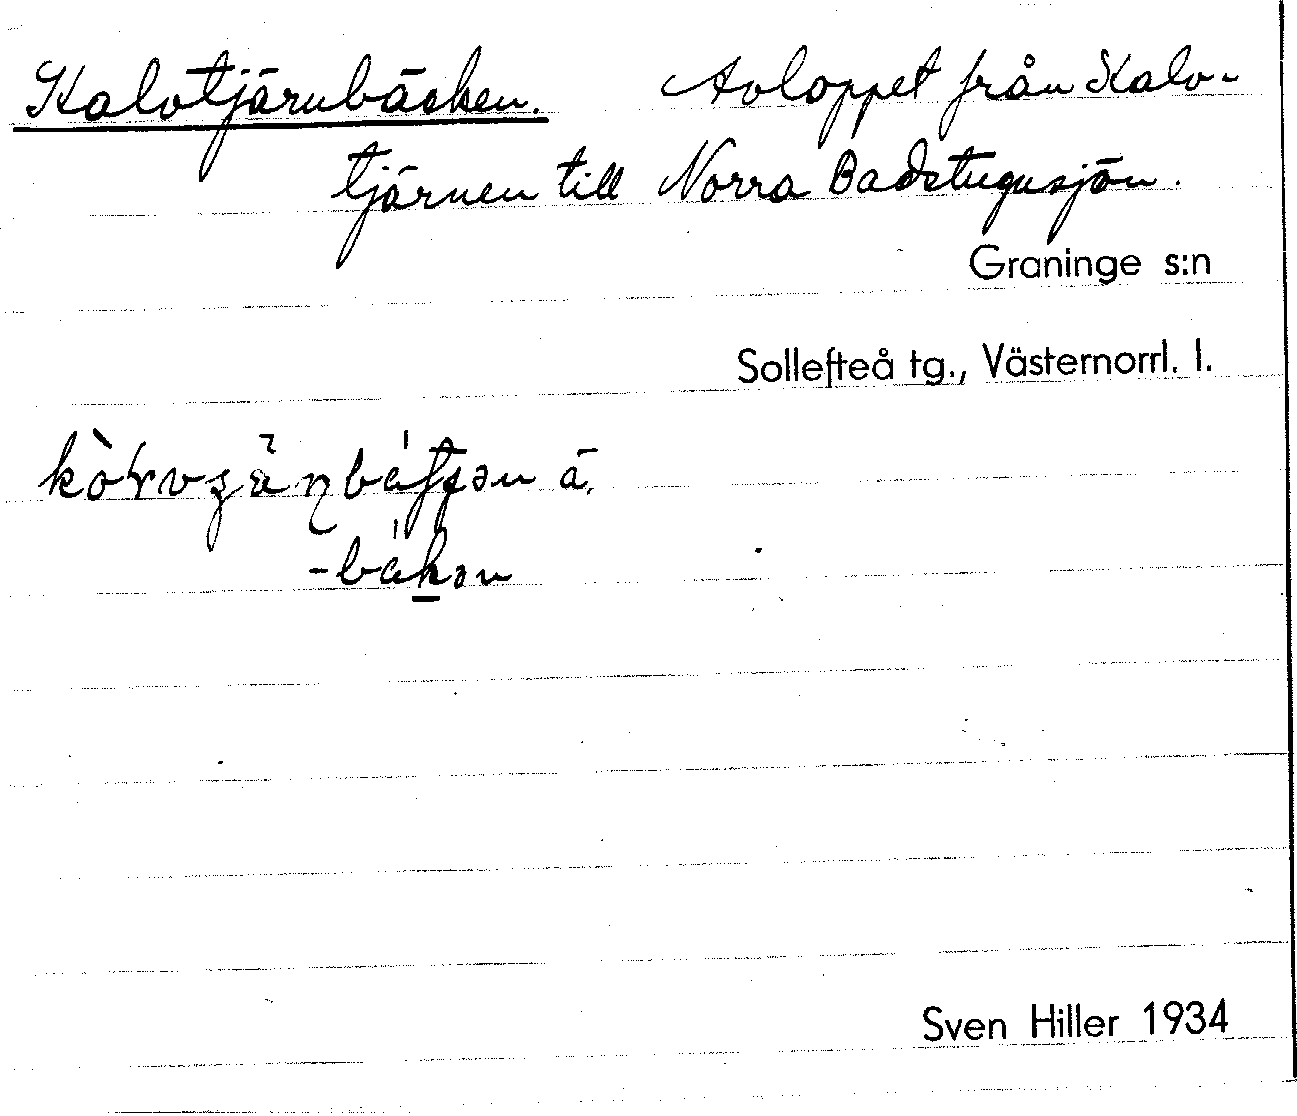 Kalvtjärnbäcken. Avloppet från Kalv-
tjärnen till Norra Badstugusjön.
Graninge s:n
Sollefteå tg., Västernorrl. l.
å.
Sven Hiller 1934